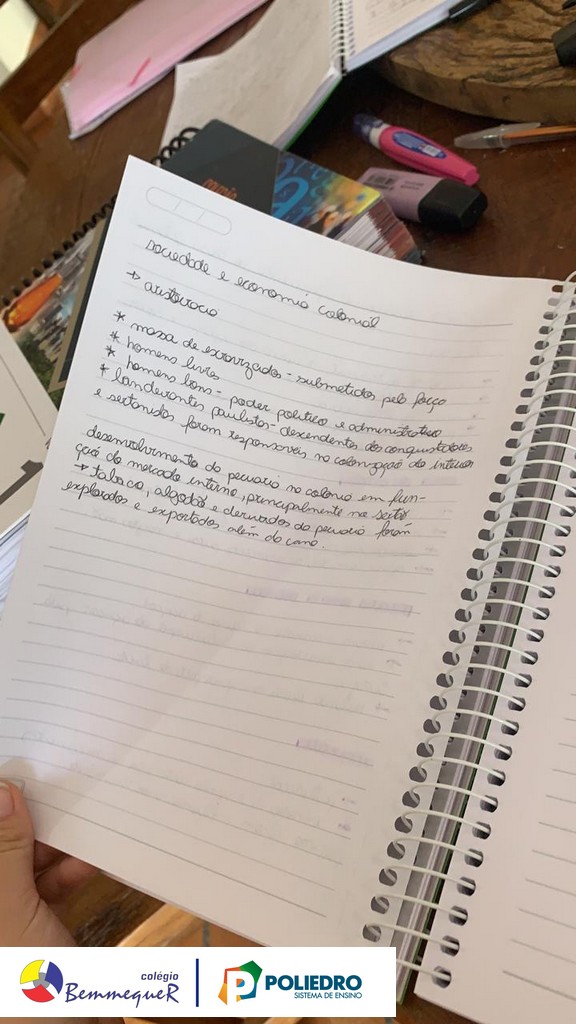 sociedade e economia colonial
→ aristocracia
* massa de escravizados - submetidos pela força
* homens livres
* homens bons - poder político e administrativo
* bandeirantes paulistas - descendentes dos conquistadores
e sertanistas foram responsáveis na colonização do interior
desenvolvimento da pecuária na colônia em fun-
ção do mercado interno, principalmente no sertão
→ tabaco, algodão e derivados da pecuária foram
explorados e exportados além da cana.
colégio
BemmequeR
POLIEDRO
SISTEMA DE ENSINO